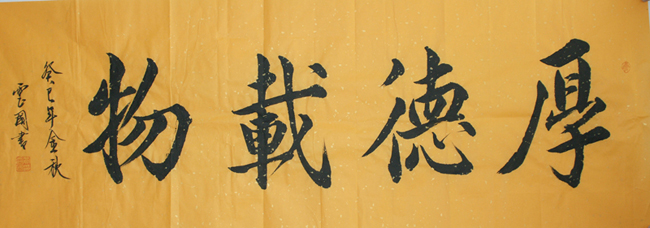 厚德載物
癸巳年金秋
雲國書